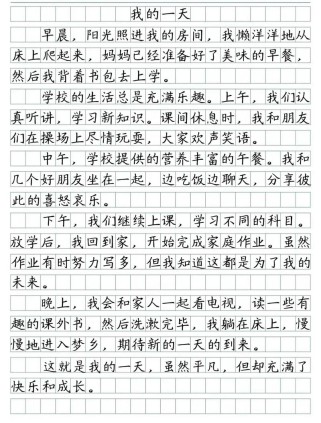 我的一天
早晨，阳光照进我的房间，我懒洋洋地从
床上爬起来，妈妈已经准备好了美味的早餐，
然后我背着书包去上学。
学校的生活总是充满乐趣。上午，我们认
真听讲，学习新知识。课间休息时，我和朋友
们在操场上尽情玩耍，大家欢声笑语。
中午，学校提供的营养丰富的午餐。我和
几个好朋友坐在一起，边吃饭边聊天，分享彼
此的喜怒哀乐。
下午，我们继续上课，学习不同的科目。
放学后，我回到家，开始完成家庭作业。虽然
作业有时努力写多，但我知道这都是为了我的
未来。
晚上，我会和家人一起看电视，读一些有
趣的课外书，然后洗漱完毕，我躺在床上，慢
慢地进入梦乡，期待新的一天的到来。
这就是我的一天，虽然平凡，但却充满了
快乐和成长。